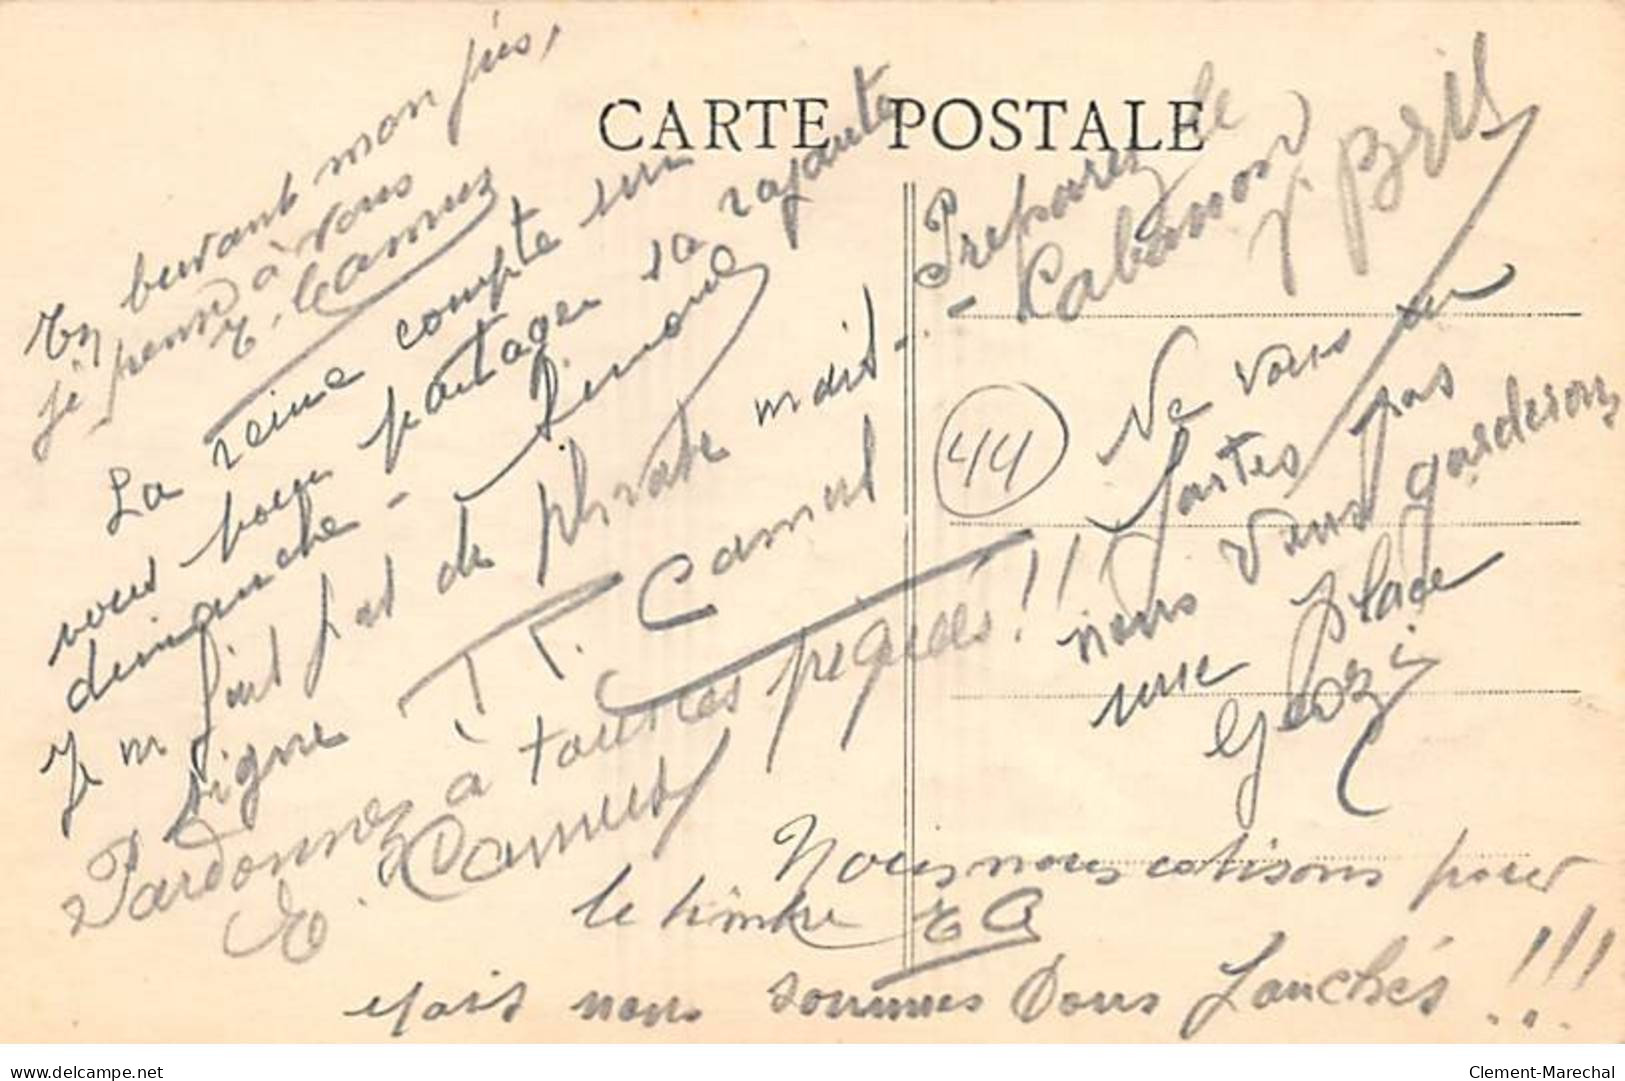 CARTE POSTALE
En buvant mon jus,
je pense à vous
E. Camus
La reine compte sur
vous pour partager sa royauté
dimanche - Simone
Je m fout pas de phrase mais...
signe T. T. Camus
Pardonnez à toutes
E. Camus
Preparez le
Cabanon
Y. Bril
44
Ne vous en
faites pas
nous vous garderons
une place
Nous nous cotisons pour
le timbre EC
Mais nous sommes tous fauchés !!!
delcampe.net
Clement-Marechal